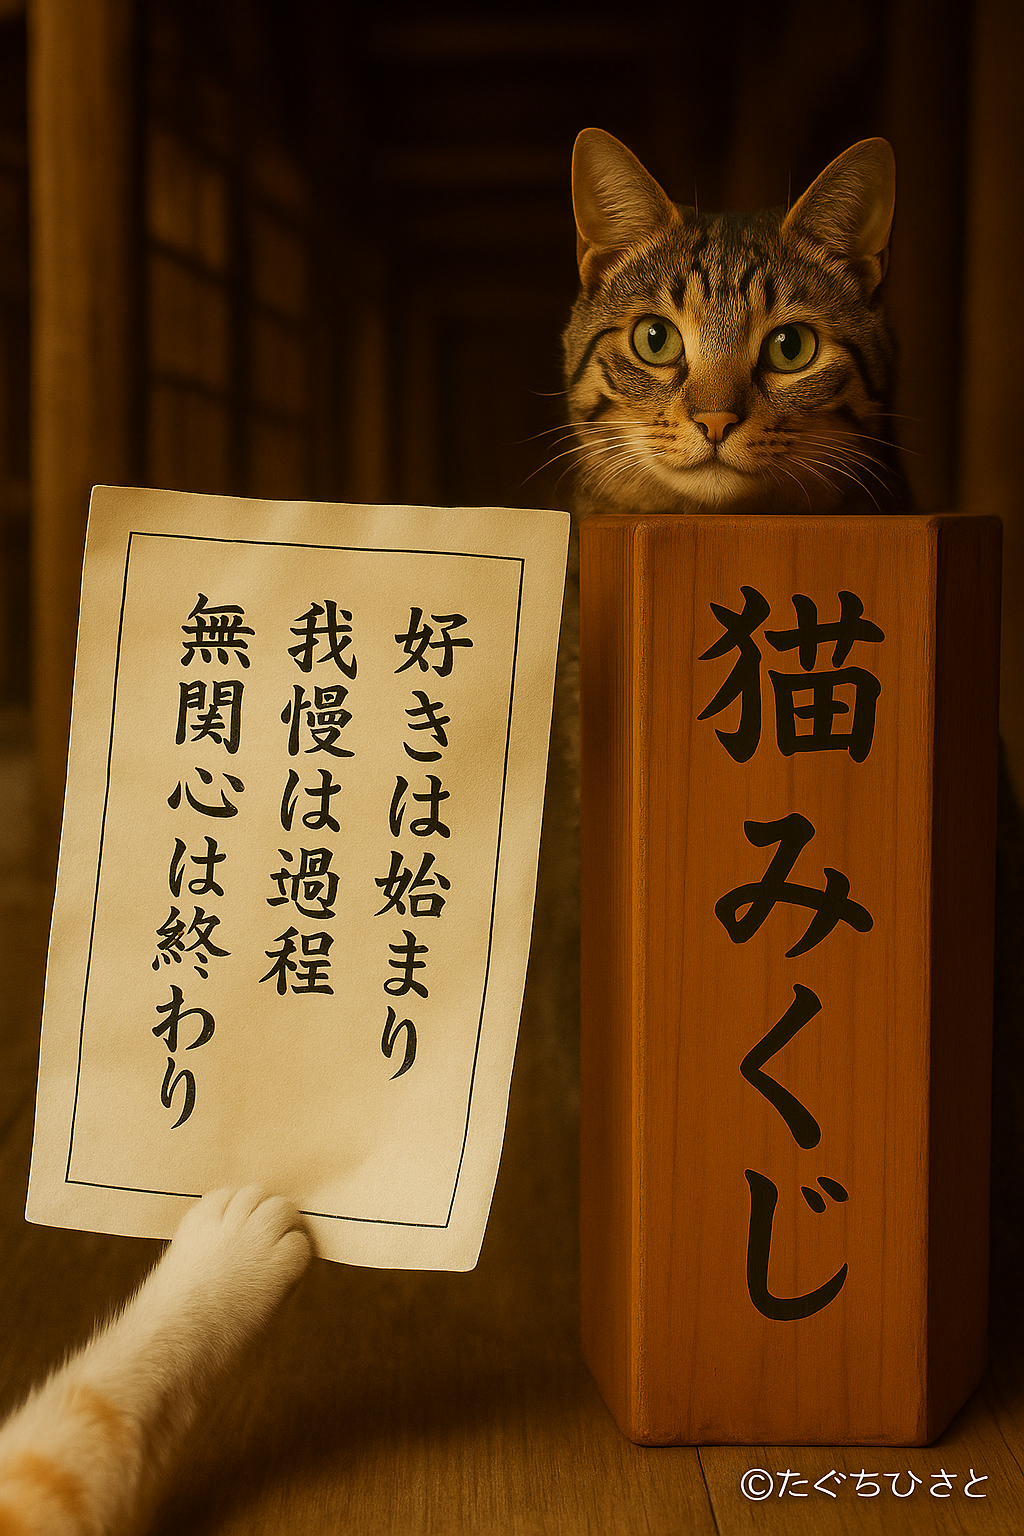 好きは始まり
我慢は過程
無関心は終わり
猫みくじ
©たぐちひさと